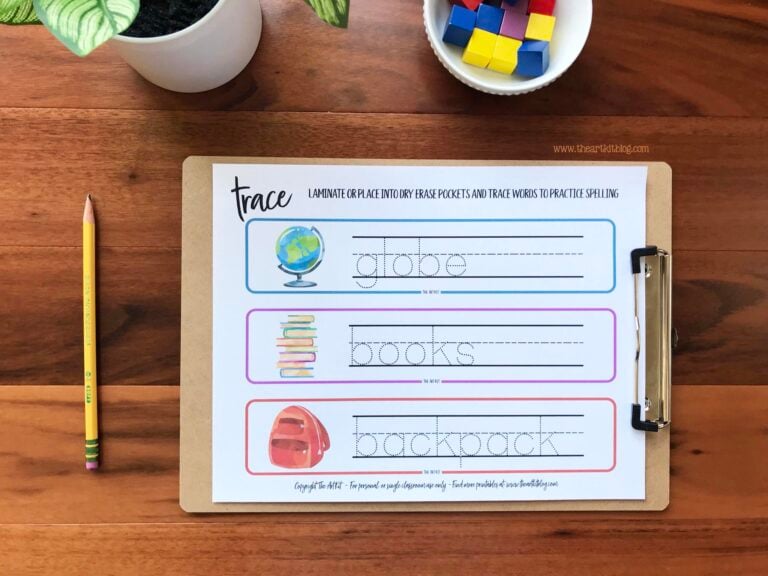 www.theartkitblog.com
trace
LAMINATE OR PLACE INTO DRY ERASE POCKETS AND TRACE WORDS TO PRACTICE SPELLING
globe
THE ART KIT
books
THE ART KIT
backpack
THE ART KIT
Copyright The Art Kit - For personal or single classroom use only - Find more printables at: www.theartkitblog.com